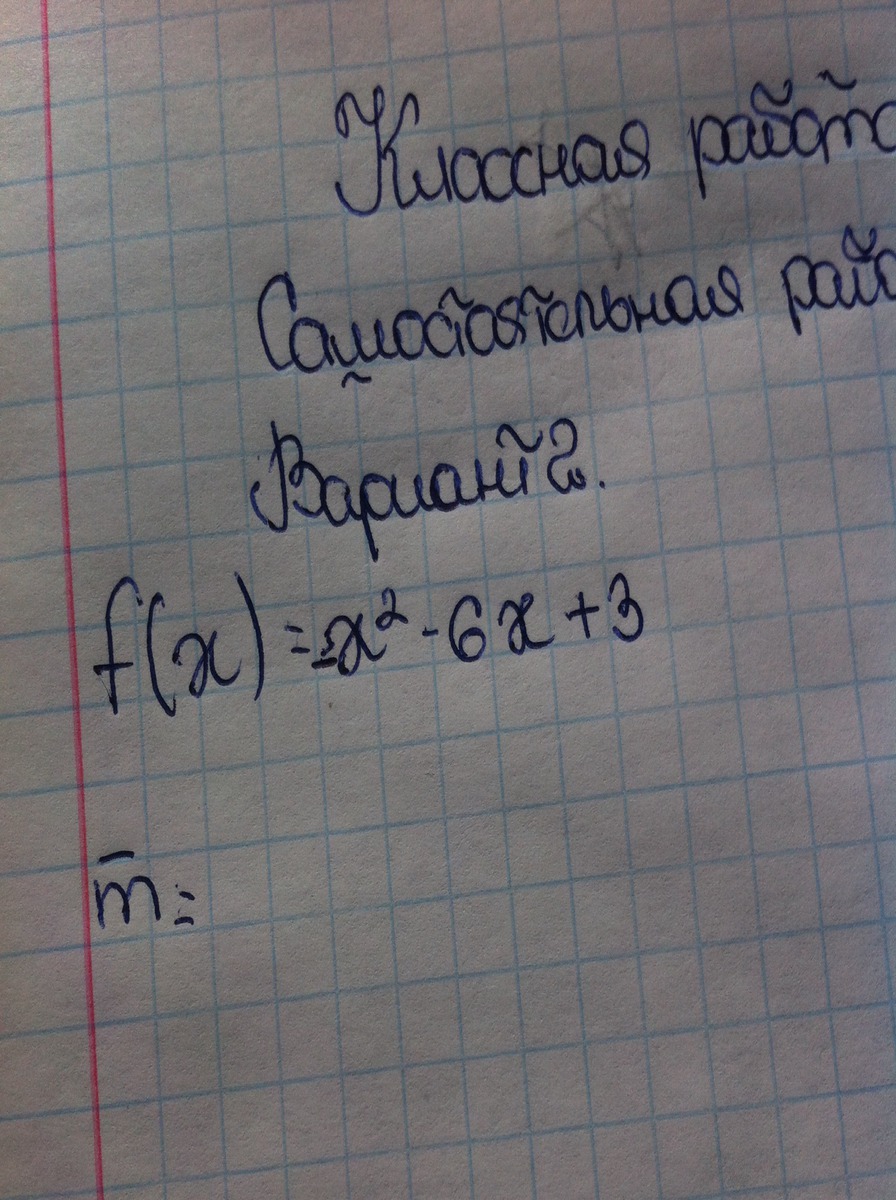 Классная работа
Самостоятельная рабо
Вариант 2.
f(x) = -x² - 6x + 3
m̄ =